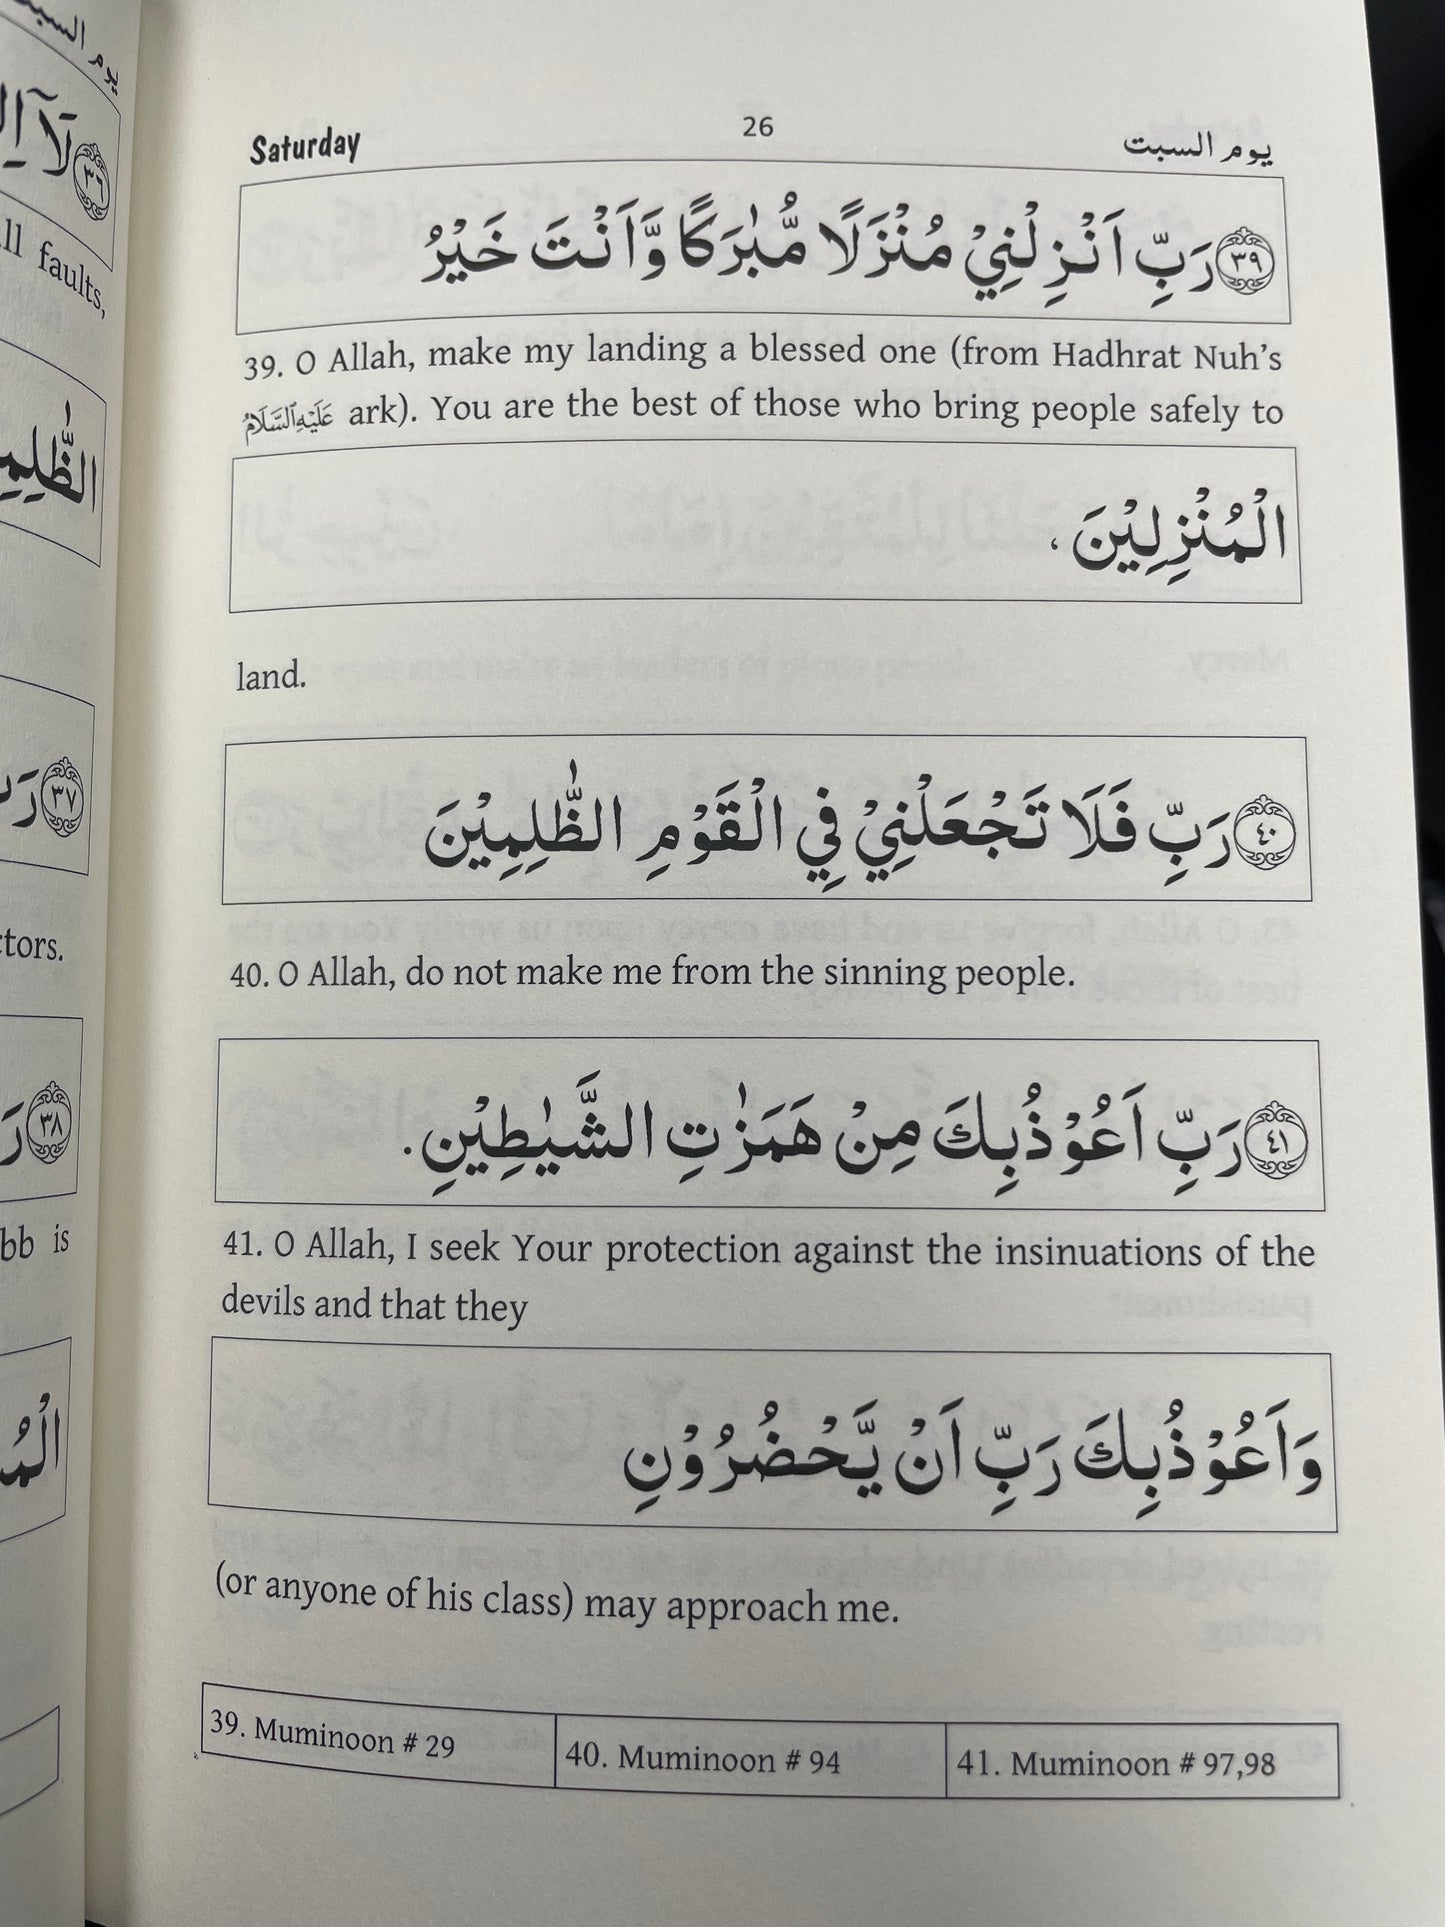 يوم السبت
لَآ
٣٦
ll faults,
الظّٰلِمِ
٣٧
ctors.
٣٨
bb is
الْمُ
Saturday 26 يوم السبت
٣٩ رَبِّ اَنْزِلْنِيْ مُنْزَلًا مُّبٰرَكًا وَّاَنْتَ خَيْرُ
39. O Allah, make my landing a blessed one (from Hadhrat Nuh’s
عَلَيْهِ السَّلَامُ ark). You are the best of those who bring people safely to
الْمُنْزِلِيْنَ ،
land.
٤٠ رَبِّ فَلَا تَجْعَلْنِيْ فِي الْقَوْمِ الظّٰلِمِيْنَ
40. O Allah, do not make me from the sinning people.
٤١ رَبِّ اَعُوْذُبِكَ مِنْ هَمَزٰتِ الشَّيٰطِيْنِ.
41. O Allah, I seek Your protection against the insinuations of the
devils and that they
وَاَعُوْذُبِكَ رَبِّ اَنْ يَّحْضُرُوْنِ
(or anyone of his class) may approach me.
39. Muminoon # 29 40. Muminoon # 94 41. Muminoon # 97,98